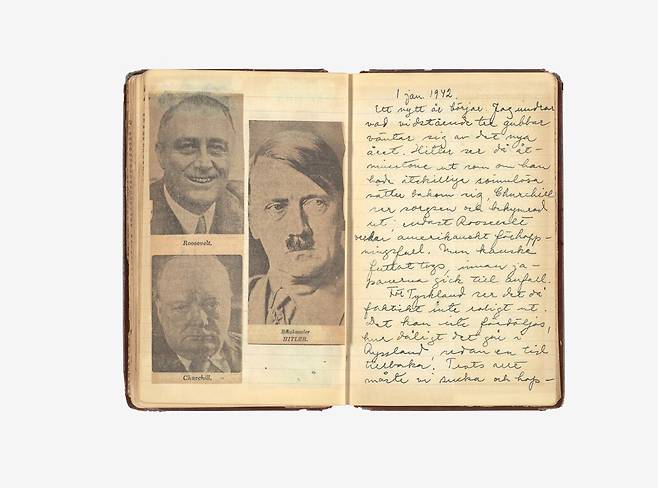 Roosevelt.
Churchill.
Rikskansler
HITLER.
1 jan. 1942.
Ett nytt år börjar. Jag undrar
vad vidstående tre gubbar
väntar sig av det nya
året. Hitler ser då åt-
minstone ut som om han
hade åtskilliga sömnlösa
nätter bakom sig, Churchill
ser sorgsen och bekymrad
ut, endast Roosevelt
verkar amerikanskt förhopp-
ningsfull. Men kanske
fotot togs, innan ja-
panerna gick till anfall.
För Tyskland ser det då
faktiskt inte roligt ut.
Det kan inte fördöljas,
hur dåligt det går i
Ryssland, sedan en tid
tillbaka. Trots allt
måste vi sucka och hop-